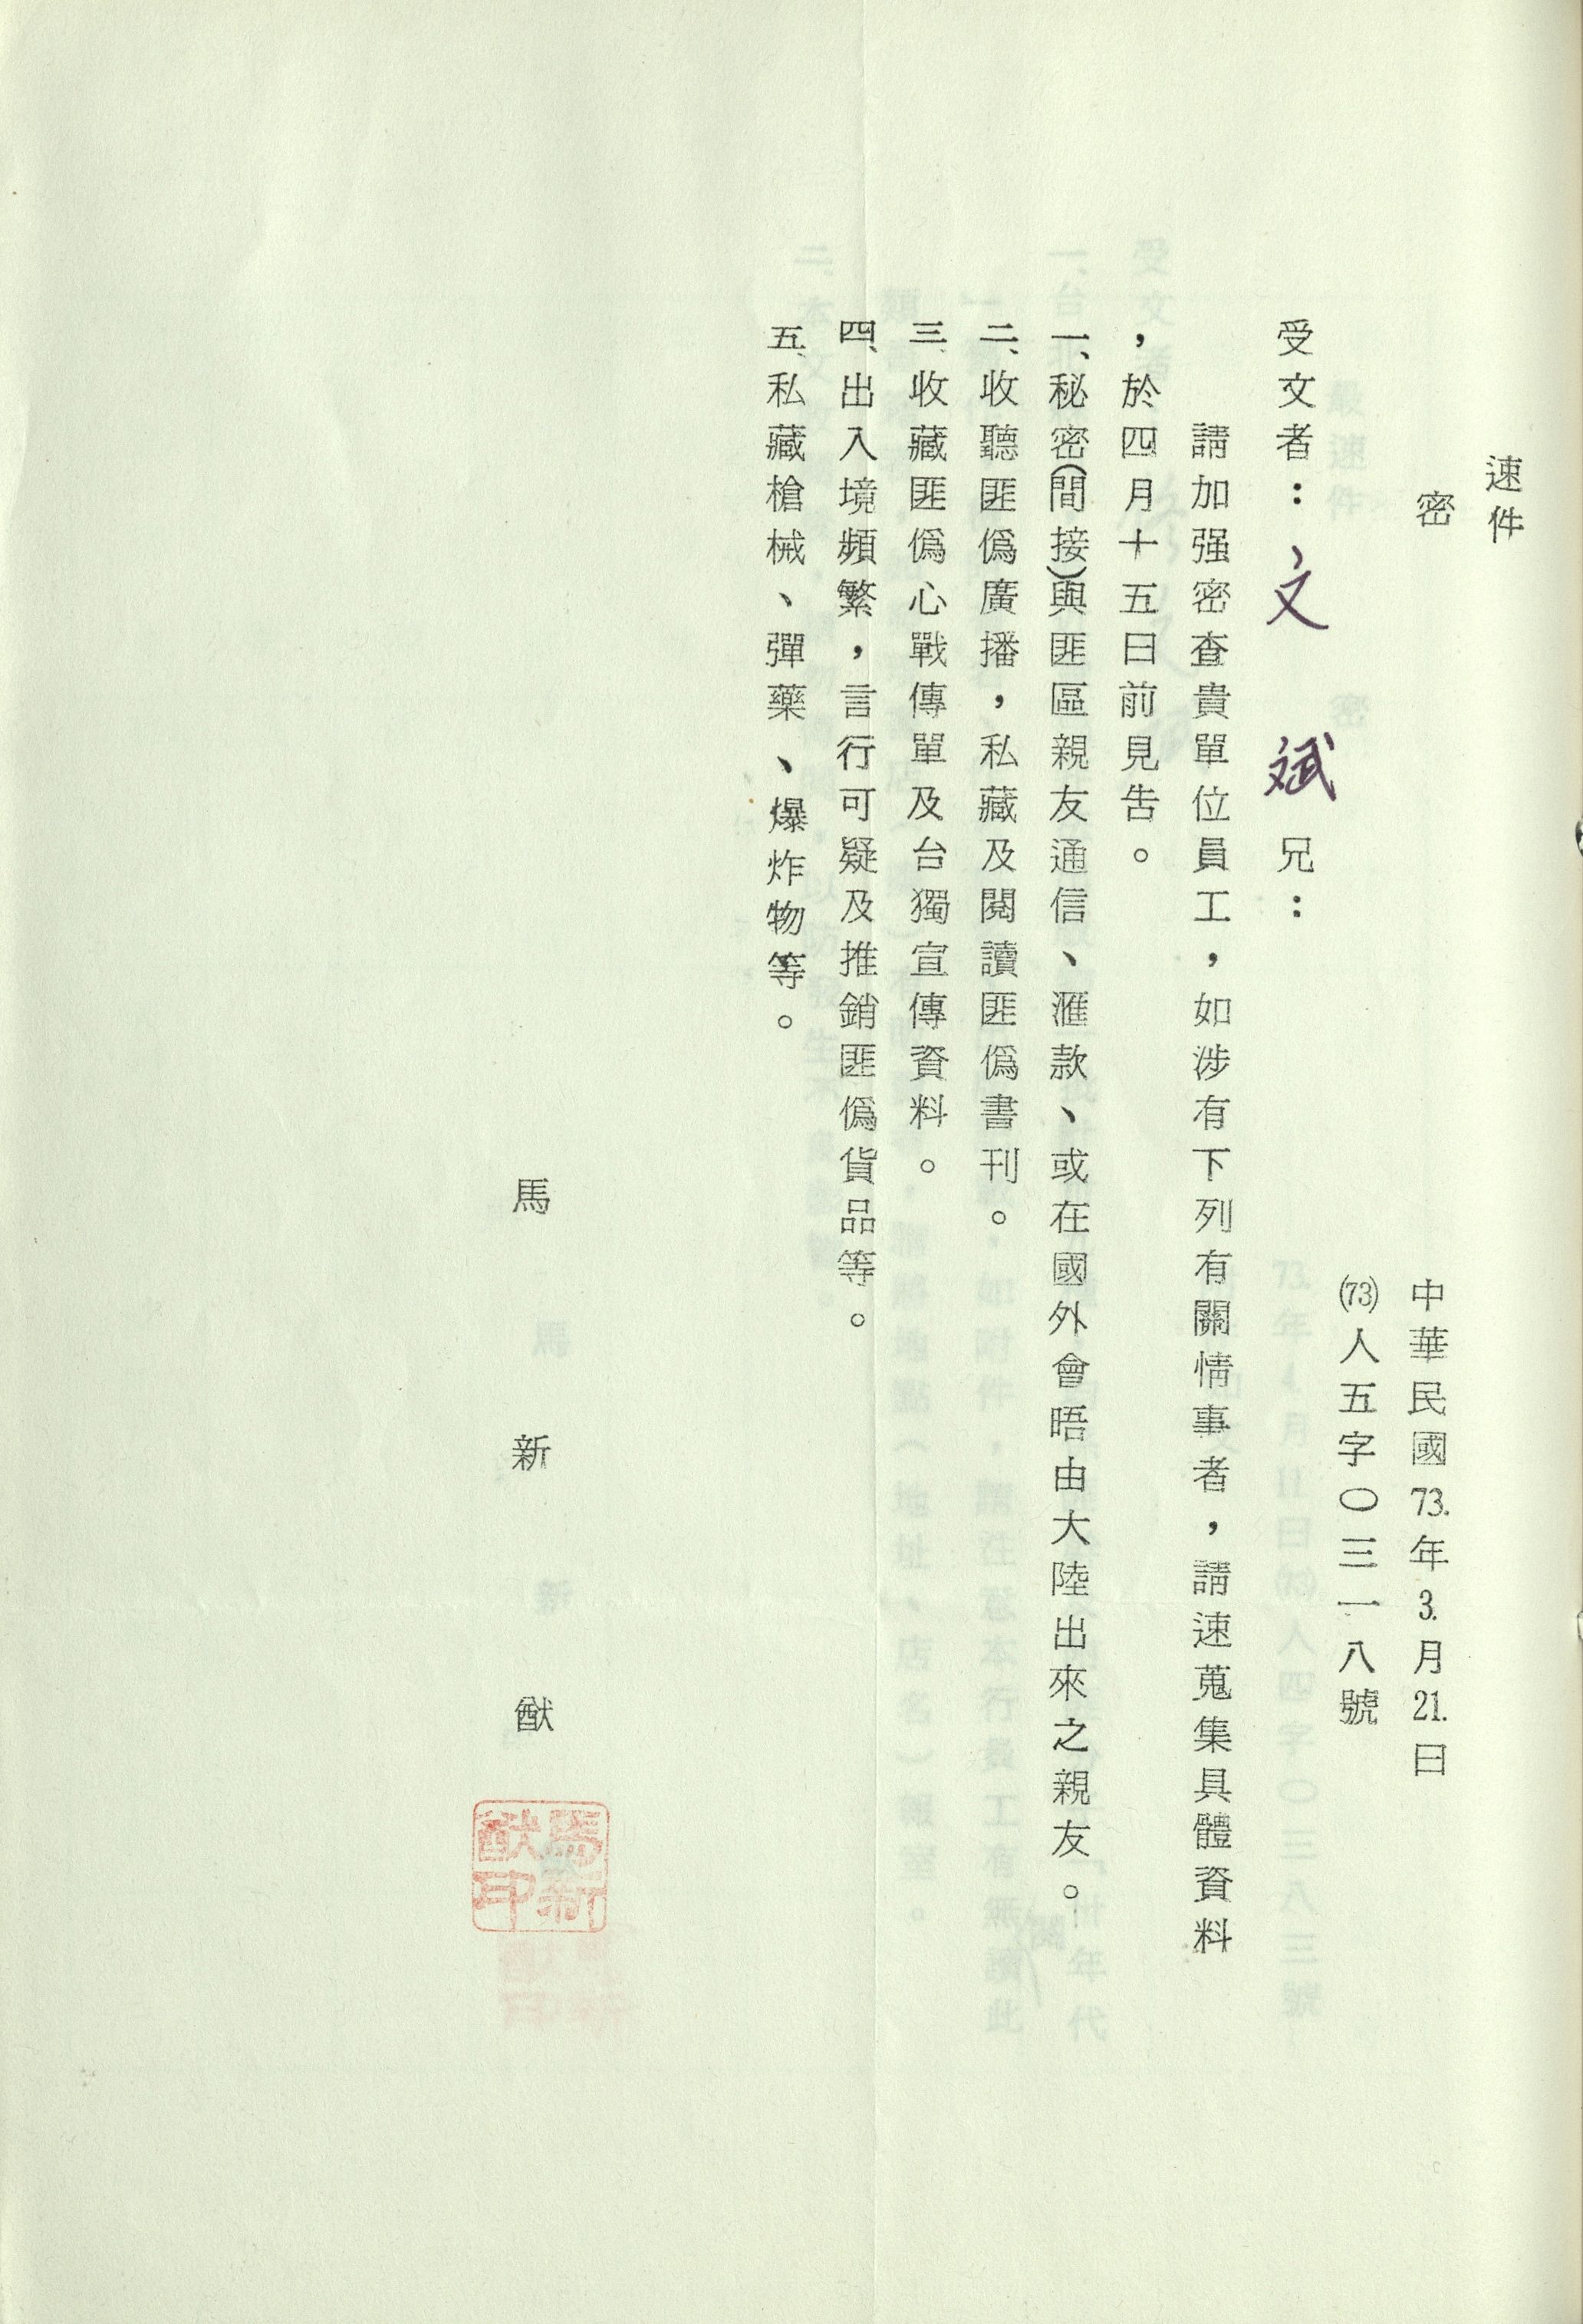 速件
密
中華民國73.年3.月21.日
(73)人五字〇三一八號
受文者：文斌兄：
請加强密查貴單位員工，如涉有下列有關情事者，請速蒐集具體資料
，於四月十五日前見告。
一、秘密(間接)與匪區親友通信、滙款、或在國外會晤由大陸出來之親友。
二、收聽匪僞廣播，私藏及閱讀匪僞書刊。
三、收藏匪僞心戰傳單及台獨宣傳資料。
四、出入境頻繁，言行可疑及推銷匪僞貨品等。
五、私藏槍械、彈藥、爆炸物等。
馬新猷
馬新猷印